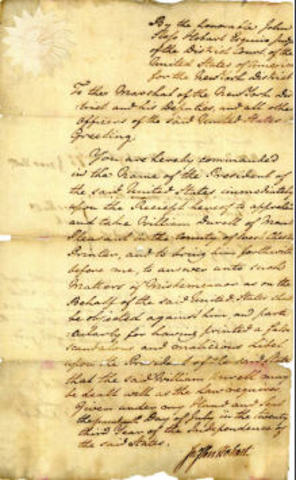 By the honorable John
Sloss Hobart Esquire Judge
of the District Court of the
United States of America
for the NewYork District
To the Marshal of the NewYork Dis
trict and his Deputies, and all other
Officers of the said United States
Greeting
You are hereby commanded
in the Name of the President of
the said United States immediately
upon the Receipt hereof to apprehend
and take William Durell of Mount
Pleasant in the County of West Chester
Printer, and to bring him forthwith
before me, to answer unto such
Matters of Misdemeanor as on the
Behalf of the said United States shall
be objected against him, and parti
cularly for having printed a false
scandalous and malicious Libel
upon the President of the said States
that the said William Durell may
be dealt with as the law requires
Given under my Hand and Seal
the Day of July in the twenty
third Year of the Independence of
the said States.
Jn Sloss Hobart